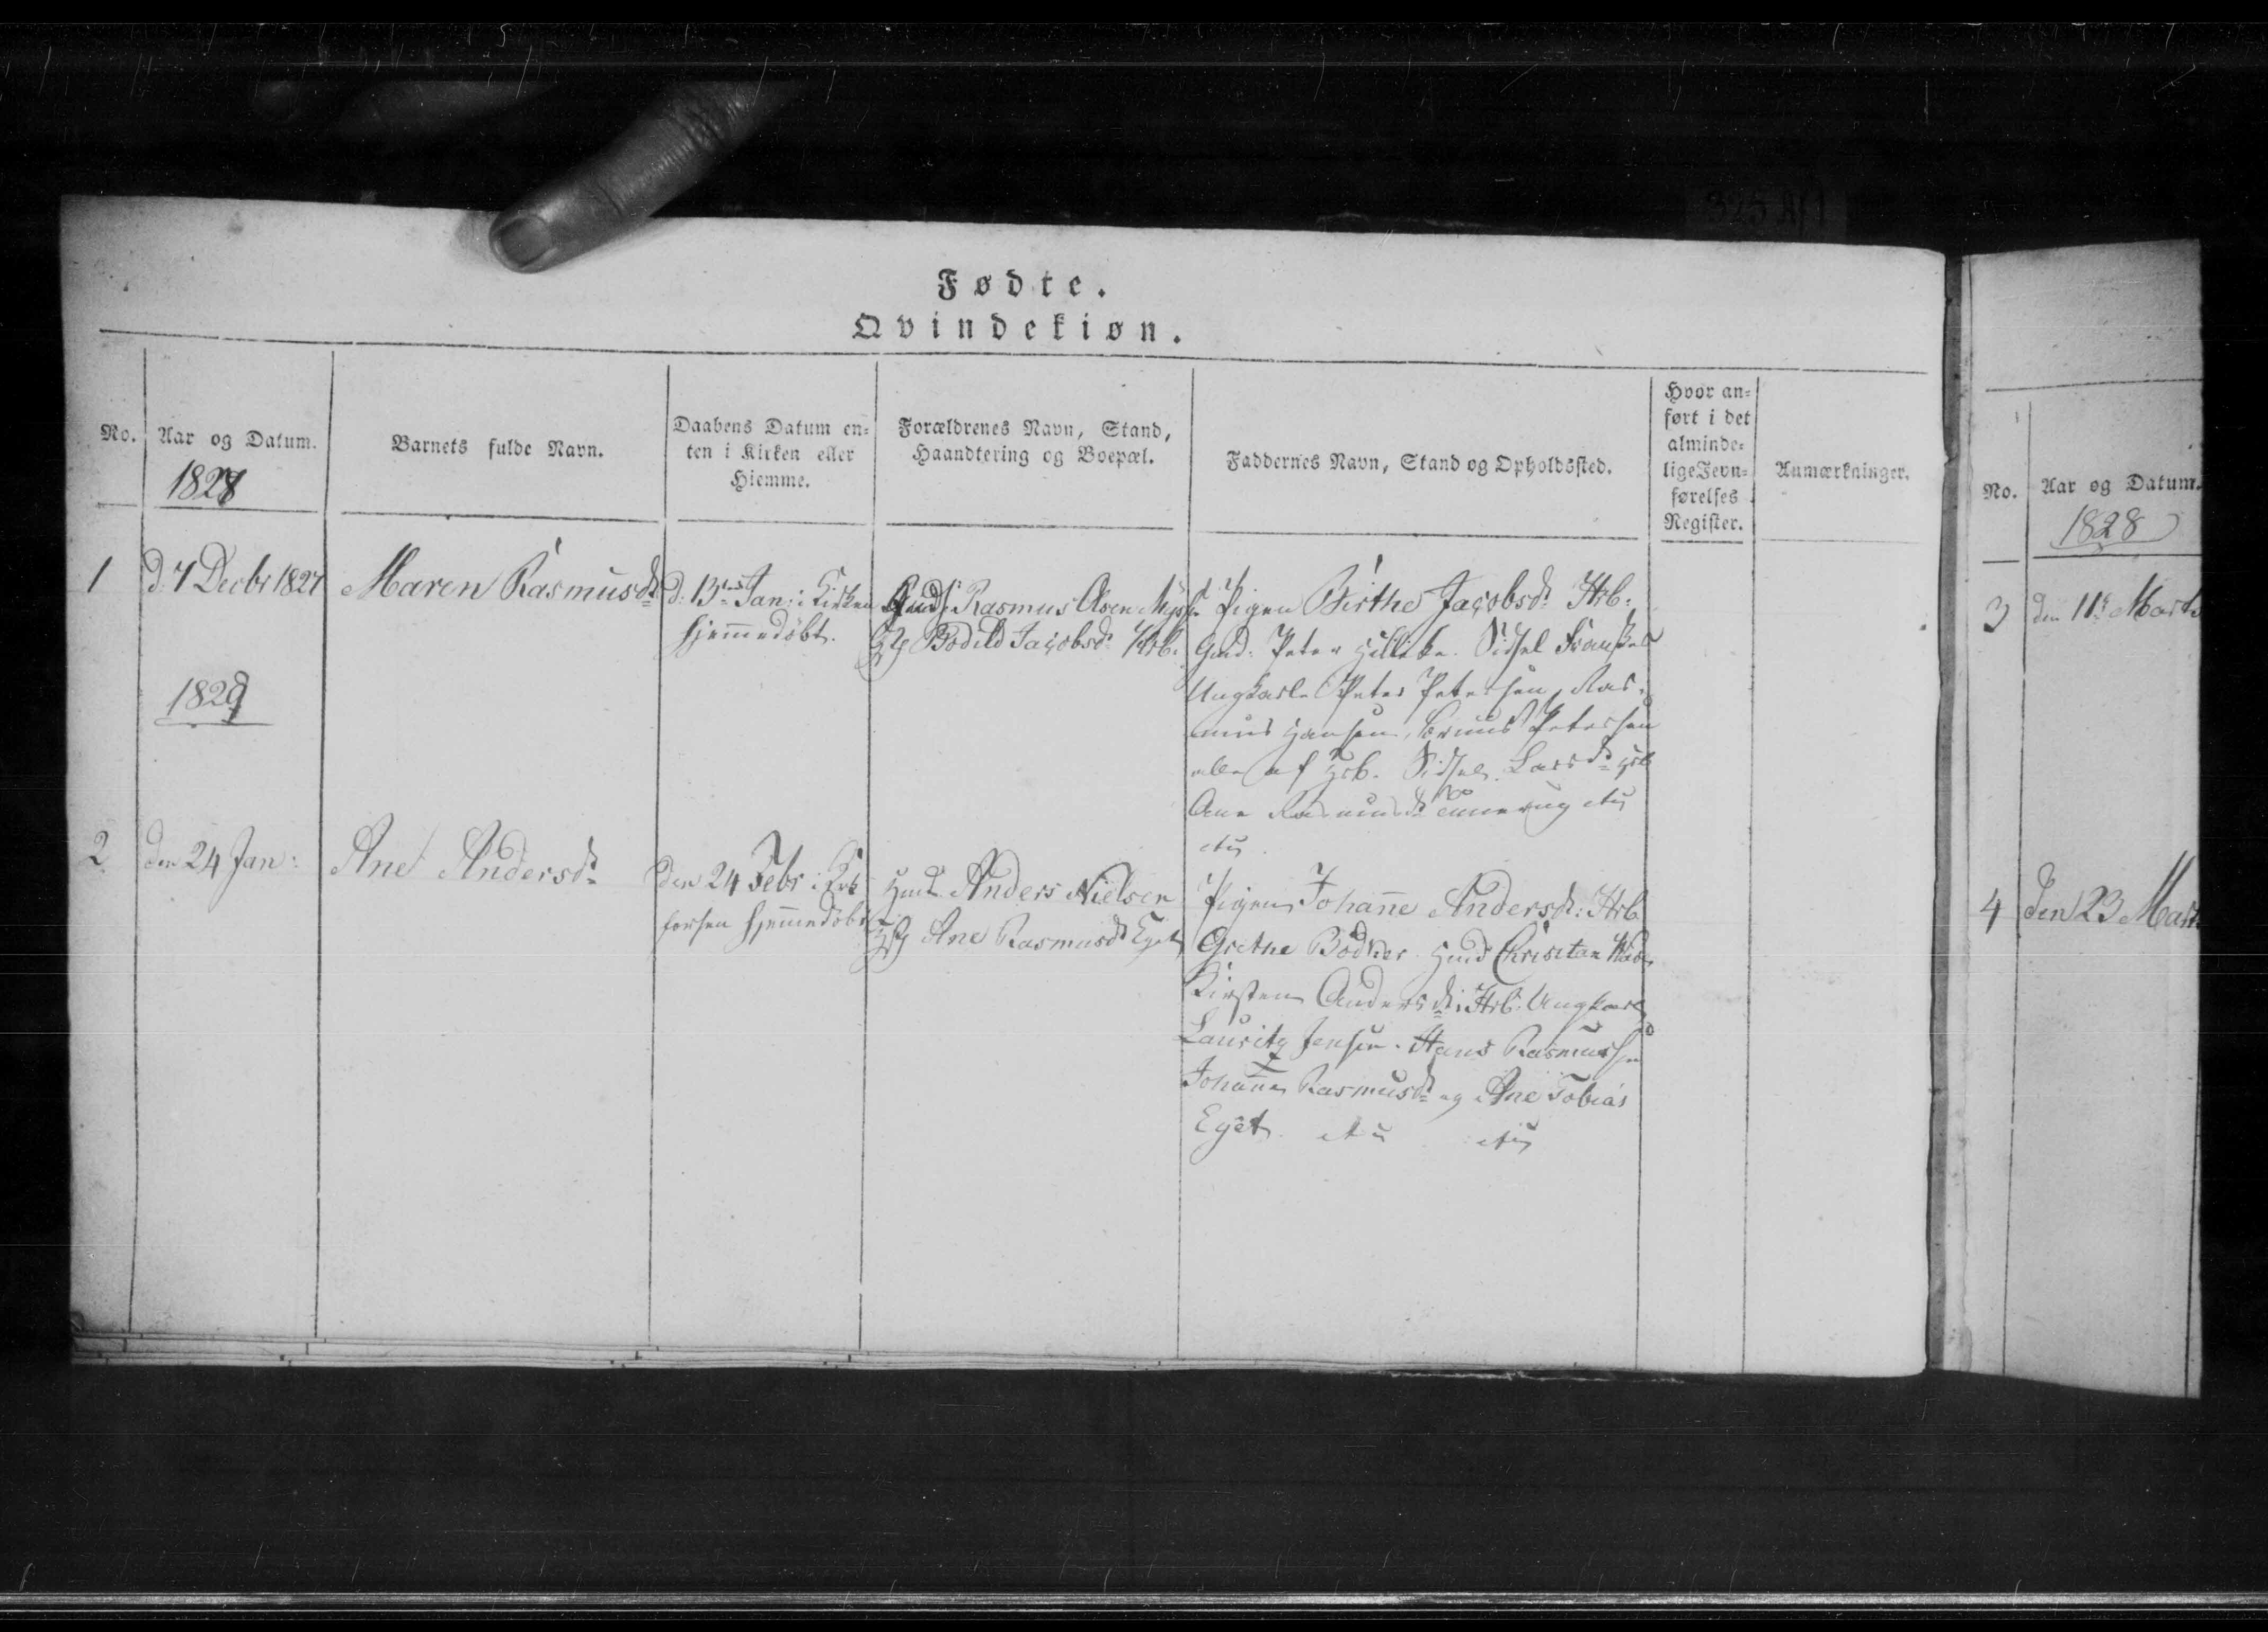 325 A/1
Fødte.
Qvindekiøn.
No.
Aar og Datum.
1827
Barnets fulde Navn.
Daabens Datum en-
ten i Kirken eller
Hiemme.
Forældrenes Navn, Stand,
Haandtering og Boepæl.
Faddernes Navn, Stand og Opholdssted.
Hvor an-
ført i det
alminde-
lige Jevn-
førelses
Register.
Anmærkninger.
1
d: 7 Decbr 1827
Maren Rasmusd:
d. 13 Jan: i Kirken
hjemmedøbt.
Rasmus Olsen
Bodild Jacobsd: Hrb.
Pigen Birthe Jacobsd: Hrb:
Gmd: Peter Sidsel
Ungkarle Peter Petersen, Ras-
mus Hansen, Petersen
alle af Hrb. Sidsel Larsd:
Ane Rasmusd:
1829
2
den 24 Jan:
Ane Andersd:
den 24 Febr i
hjemmedøbt
Huusm: Anders Nielsen
Ane Rasmusd: Eget
Pigen Johanne Andersd: Hrb
Grethe Bödker
Kirsten Andersd: Hrb: Ungkarl
Lauritz Jensen. Hans Rasmussen
Johanne Rasmusd: og Ane Tobias
Eget
No.
Aar og Datum.
1828
3
den 11 Marts
4
den 23 Mart